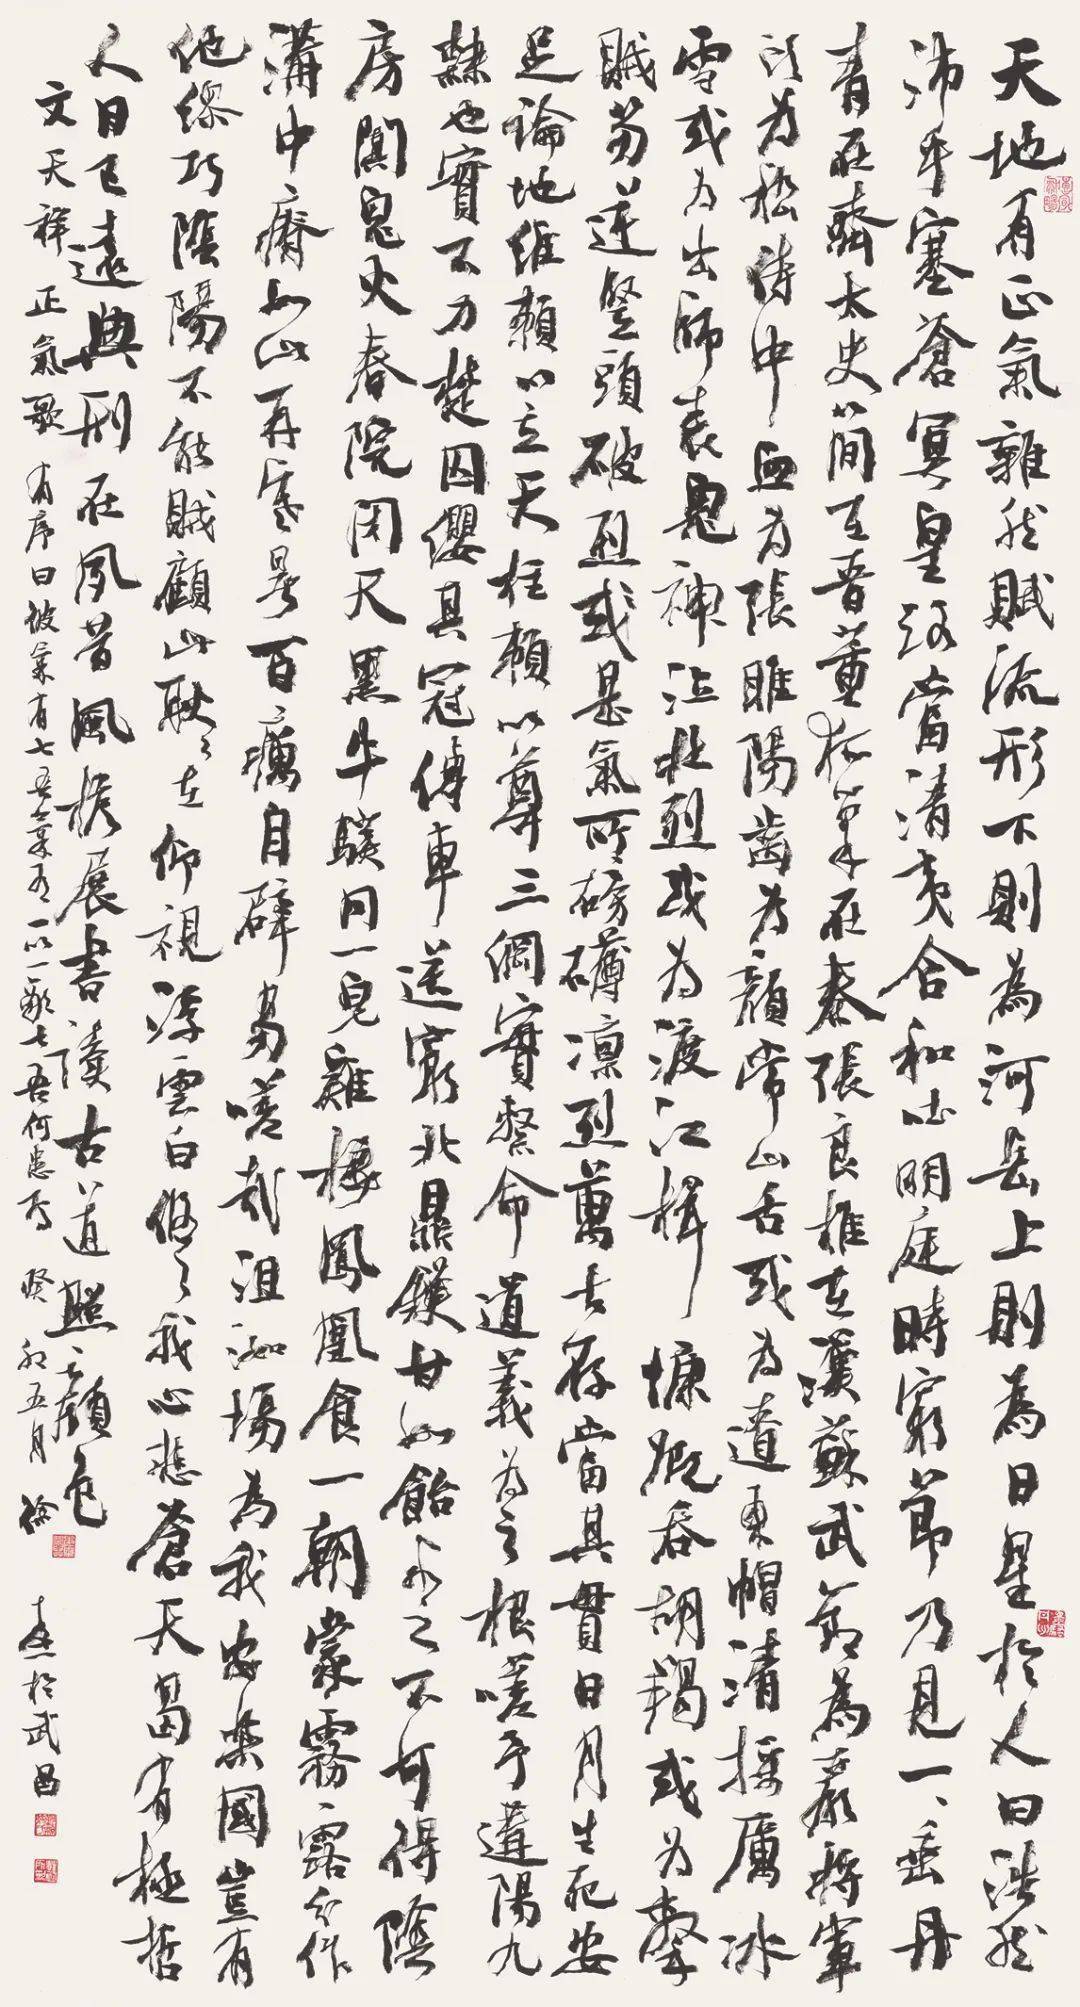 天地有正氣雜然賦流形下則為河嶽上則為日星於人曰浩然
沛乎塞蒼冥皇路當清夷含和吐明庭時窮節乃見一一垂丹
青在齊太史簡在晉董狐筆在秦張良椎在漢蘇武節為嚴將軍
頭為嵇侍中血為張睢陽齒為顏常山舌或為遼東帽清操厲冰
雪或為出師表鬼神泣壯烈或為渡江楫慷慨吞胡羯或為擊
賊笏逆豎頭破裂或是氣所磅礴凜烈萬古存當其貫日月生死安
足論地維賴以立天柱賴以尊三綱實繫命道義為之根嗟予遘陽九
隸也實不力楚囚纓其冠傳車送窮北鼎鑊甘如飴求之不可得陰
房闃鬼火春院閉天黑牛驥同一皂雞棲鳳凰食一朝蒙霧露分作
溝中瘠如此再寒暑百癘自辟易嗟哉沮洳場為我安樂國豈有
他繆巧陰陽不能賊顧此耿耿在仰視浮雲白悠悠我心悲蒼天曷有極哲
人日已遠典刑在夙昔風檐展書讀古道照顏色
文天祥正氣歌 有序曰彼氣有七吾氣有一以一敵七吾何患焉 癸卯五月 徐 於武昌